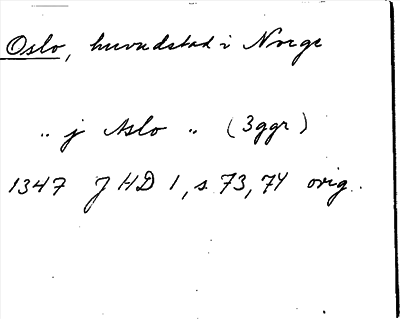 Oslo, huvudstad i Norge
" j Aslo " (3ggr)
1347 JHD 1, s 73, 74 orig.